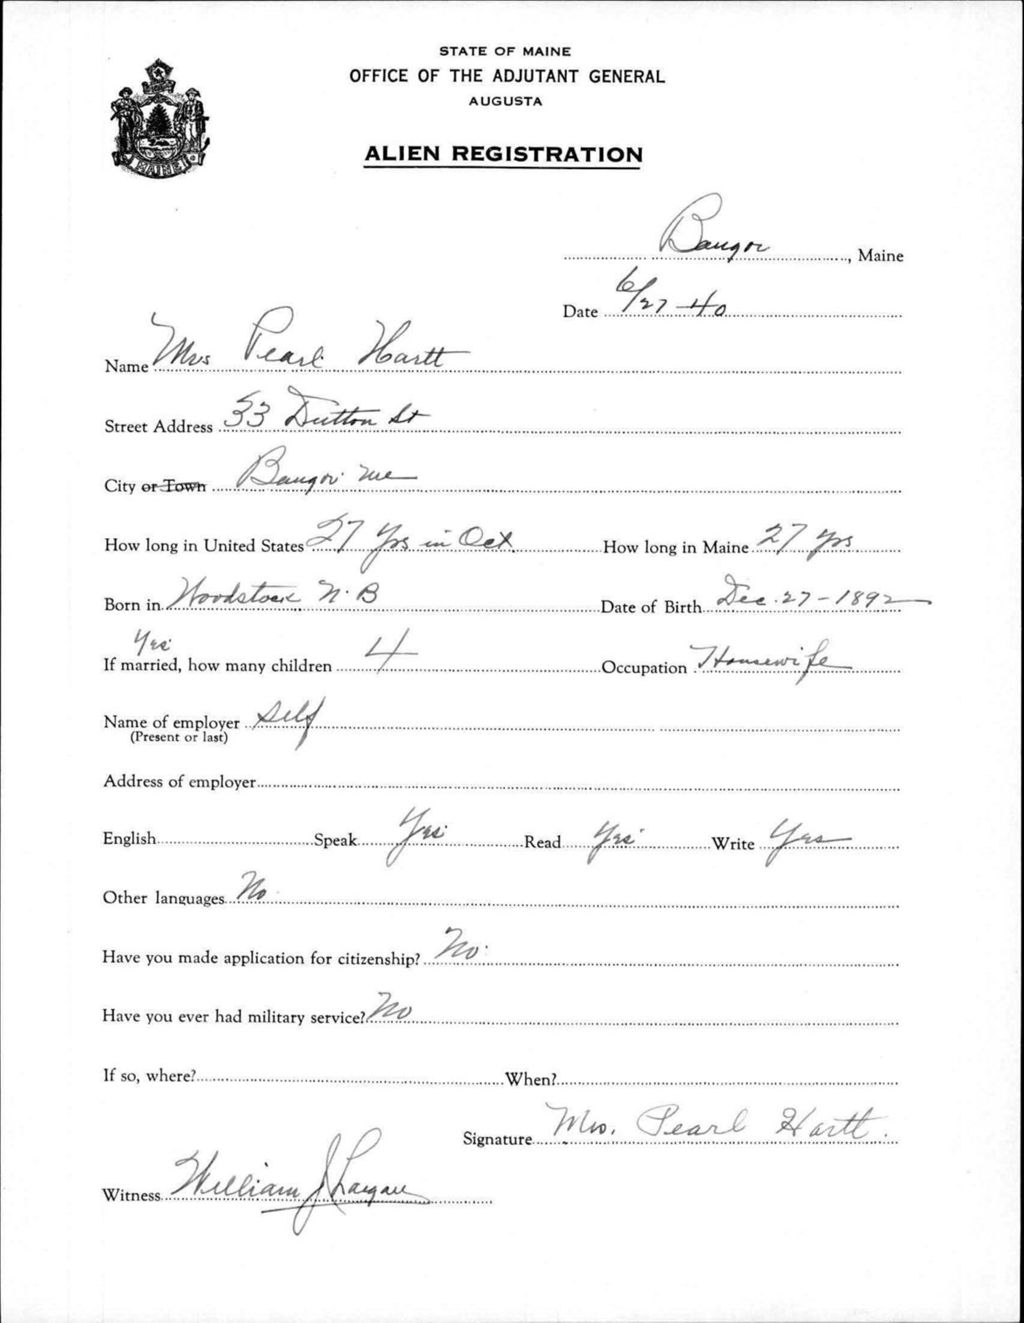 STATE OF MAINE
OFFICE OF THE ADJUTANT GENERAL
AUGUSTA
MAINE
ALIEN REGISTRATION
Bangor, Maine
Date 6/27-40
Name Mrs Pearl Hartt
Street Address 33 Dutton St
City or Town Bangor Me
How long in United States 27 Yrs in Oct. How long in Maine 27 Yrs
Born in Woodstock N.B Date of Birth Dec. 27-1892
Yes
If married, how many children 4 Occupation Housewife
Name of employer Self
(Present or last)
Address of employer
English Speak Yes Read Yes Write Yes
Other languages No
Have you made application for citizenship? No
Have you ever had military service? No
If so, where? When?
Signature Mrs. Pearl Hartt.
Witness William J